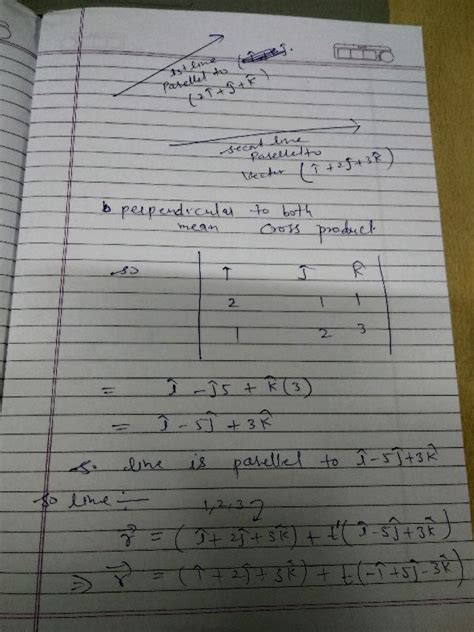 1st line
Parellel to
(2î+ĵ+k̂)
second line
Parellel to
vector (î+2ĵ+3k̂)
perpendicular to both
mean cross product
so | î ĵ k̂ |
| 2 1 1 |
| 1 2 3 |
= î - ĵ5 + k̂(3)
= î - 5ĵ + 3k̂
So line is parellel to î-5ĵ+3k̂
So line :-
1,2,3
r⃗ = (î+2ĵ+3k̂) + t'(î-5ĵ+3k̂)
⇒ r⃗ = (î+2ĵ+3k̂) + t(-î+5ĵ-3k̂)